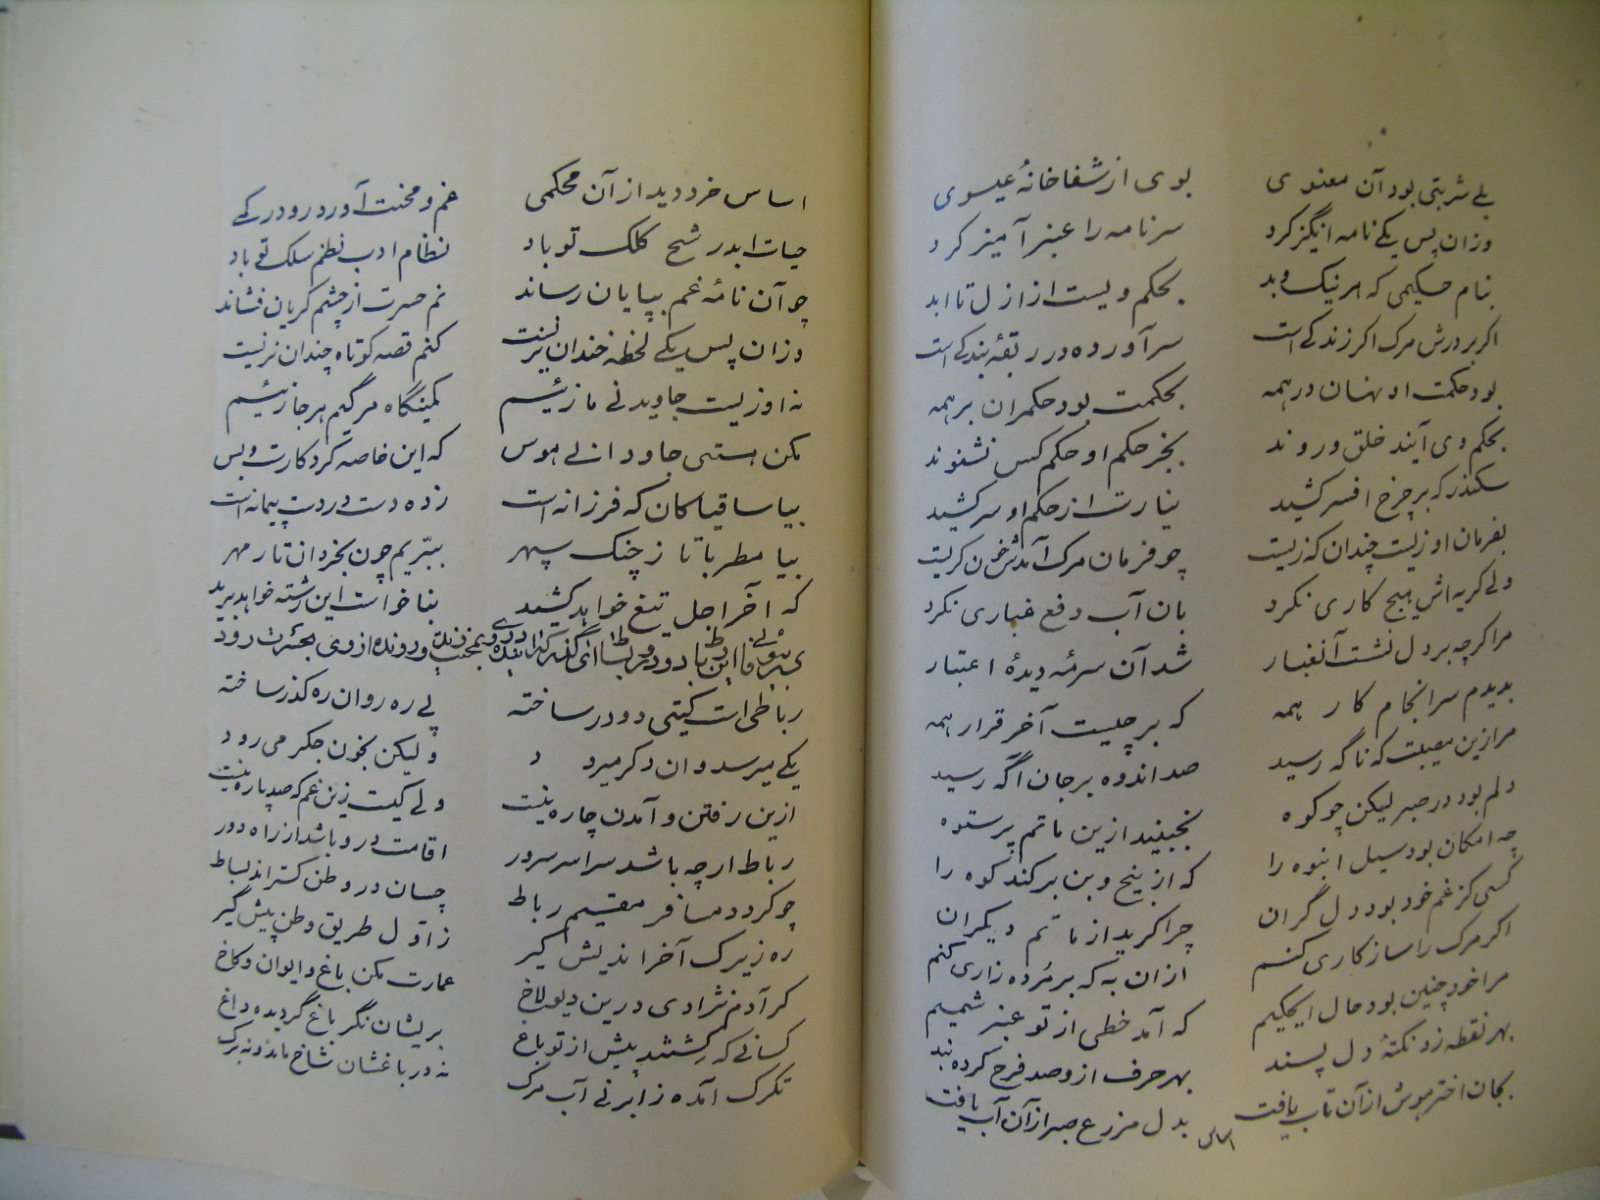 بلے شربتی بود آن معنوی بوی از شفاخانهٔ عیسوی
وزان پس یکے نامه انگیز کرد سرنامه را عنبر آمیز کرد
بنام حکیمی که هر نیک و بد بحکم ویست از ازل تا ابد
اگر پرورش مرگ اگر زندگی است سر آورده در ربقهٔ بندگی است
بود حکمت او نهان در همه بحکمت بود حکمران بر همه
بحکم وی آیند خلق و روند بجز حکم او حکم کس نشنوند
سکندر که بر چرخ افسر کشید نیارست از حکم او سر کشید
بفرمان او زیست چندان که زیست چو فرمان مرگ آمدش خون گریست
ولے گریه اش هیچ کاری نکرد بان آب دفع غباری نکرد
مرا گرچه بر دل نشست آن غبار شد آن سرمهٔ دیدهٔ اعتبار
بدیدم سرانجام کار همه که بر چیست آخر قرار همه
مرا زین مصیبت که ناگه رسید صد اندوه بر جان آگه رسید
دلم بود در صبر لیکن چو کوه نجنبید ازین ماتم پر ستوه
چه امکان بود سیل انبوه را که از بیخ و بن بر کند کوه را
کسی کز غم خود بود دل گران چرا گرید از ماتم دیگران
اگر مرگ را ساز کاری کنم از ان به که بر مرده زاری کنم
مرا خود چنین بود حال ای حکیم که آمد خطی از تو عنبر شمیم
بهر نقطه زو نکتهٔ دل پسند بهر حرف ازو صد فرح کرده بند
بجان اختر هوش از آن تاب یافت بدل مزرع صبر از آن آب یافت
اساس
اساس خرد دید از آن محکمی غم و محنت آورد رو در کمی
حیات ابد رشح کلک تو باد نظام ادب نظم سلک تو باد
چو آن نامهٔ غم بپایان رساند نم حسرت از چشم گریان فشاند
وزان پس یکے لحظه خندان نزیست کنم قصه کوتاه چندان نزیست
نه او زیست جاوید نے ما زئیم کمینگاه مرگیم هر جا زئیم
مکن هستی جاودانے هوس که این خاصهٔ کردگارست و بس
بیا ساقیا کان که فرزانه است زده دست در دست پیمانه است
بیا مطربا تا ز چنگ سپهر ببریم چون بخردان تار مهر
که آخر اجل تیغ خواهد کشید بناخواست این رشته خواهد برید
رباطی است گیتی دو در ساخته پے ره روان ره گذر ساخته
یکے میرسد وان دگر میرود ولیکن بخون جگر می رود
ازین رفتن و آمدن چاره نیست ولے کیست زین غم که صد پاره نیست
رباط ار چه باشد سراسر سرور اقامت درو باشد از راه دور
چو گردد مسافر مقیم رباط چسان در وطن گستراند بساط
ره زیرک آخر اندیش گیر ز اول طریق وطن پیش گیر
گر آدم نژادی درین دیولاخ عمارت مکن باغ و ایوان و کاخ
کسانے که کشتند پیش از تو باغ بریشان نگر باغ گردیده داغ
تگرگ آمده ز ابر نے آب مرگ نه در باغشان شاخ مانده نه برگ